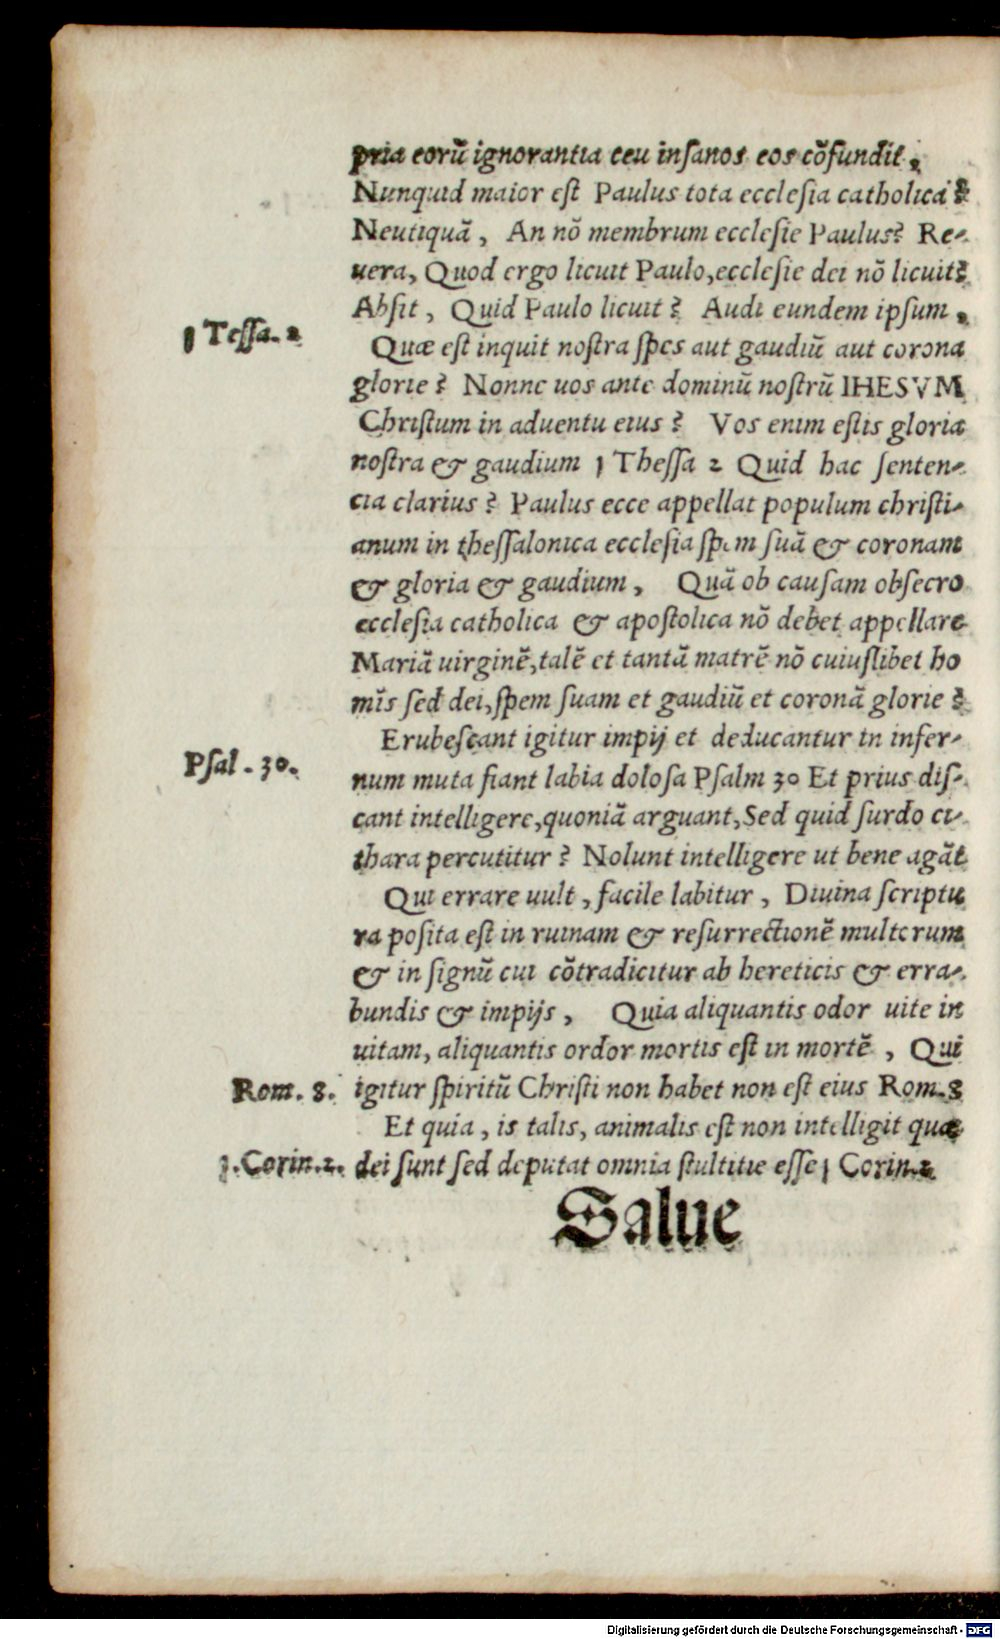 pria eorū ignorantia ceu inſanos eos cõfundit,
Nunquid maior eſt Paulus tota eccleſia catholica?
Neutiquã, An nõ membrum eccleſie Paulus? Re-
uera, Quod ergo licuit Paulo, eccleſie dei nõ licuit?
Abſit, Quid Paulo licuit? Audi eundem ipſum,
1 Teſſa. 2
Quæ eſt inquit noſtra ſpes aut gaudiū aut corona
glorie? Nonne uos ante dominū noſtrū IHESVM
Chriſtum in aduentu eius? Vos enim eſtis gloria
noſtra & gaudium 1 Theſſa 2 Quid hac ſenten-
cia clarius? Paulus ecce appellat populum chriſti-
anum in theſſalonica eccleſia ſpem ſuã & coronam
& gloria & gaudium, Quã ob cauſam obſecro
eccleſia catholica & apoſtolica nõ debet appellare
Mariã uirginẽ, talẽ et tantã matrẽ nõ cuiuſlibet ho
mīs ſed dei, ſpem ſuam et gaudiū et coronã glorie?
Erubeſcant igitur impij et deducantur in infer-
Pſal. 30.
num muta fiant labia doloſa Pſalm 30 Et prius diſ-
cant intelligere, quoniã arguant, Sed quid ſurdo ci-
thara percutitur? Nolunt intelligere ut bene agãt
Qui errare uult, facile labitur, Diuina ſcriptu
ra poſita eſt in ruinam & reſurrectionẽ multorum
& in ſignū cui cõtradicitur ab hereticis & erra-
bundis & impijs, Quia aliquantis odor uite in
uitam, aliquantis ordor mortis eſt in mortẽ, Qui
Rom. 8. igitur ſpiritū Chriſti non habet non eſt eius Rom. 8
Et quia, is talis, animalis eſt non intelligit quæ
1. Corin. 2. dei ſunt ſed deputat omnia ſtultitie eſſe 1 Corin. 2
Salue
Digitalisierung gefördert durch die Deutsche Forschungsgemeinschaft - DFG